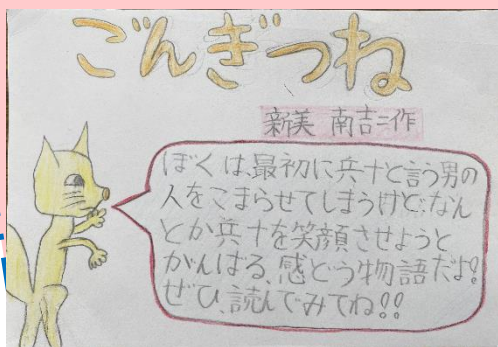 ごんぎつね
新美 南吉=作
ぼくは、最初に兵十と言う男の
人をこまらせてしまうけど、なん
とか兵十を笑顔させようと
がんばる、感どう物語だよ!
ぜひ、読んでみてね!!